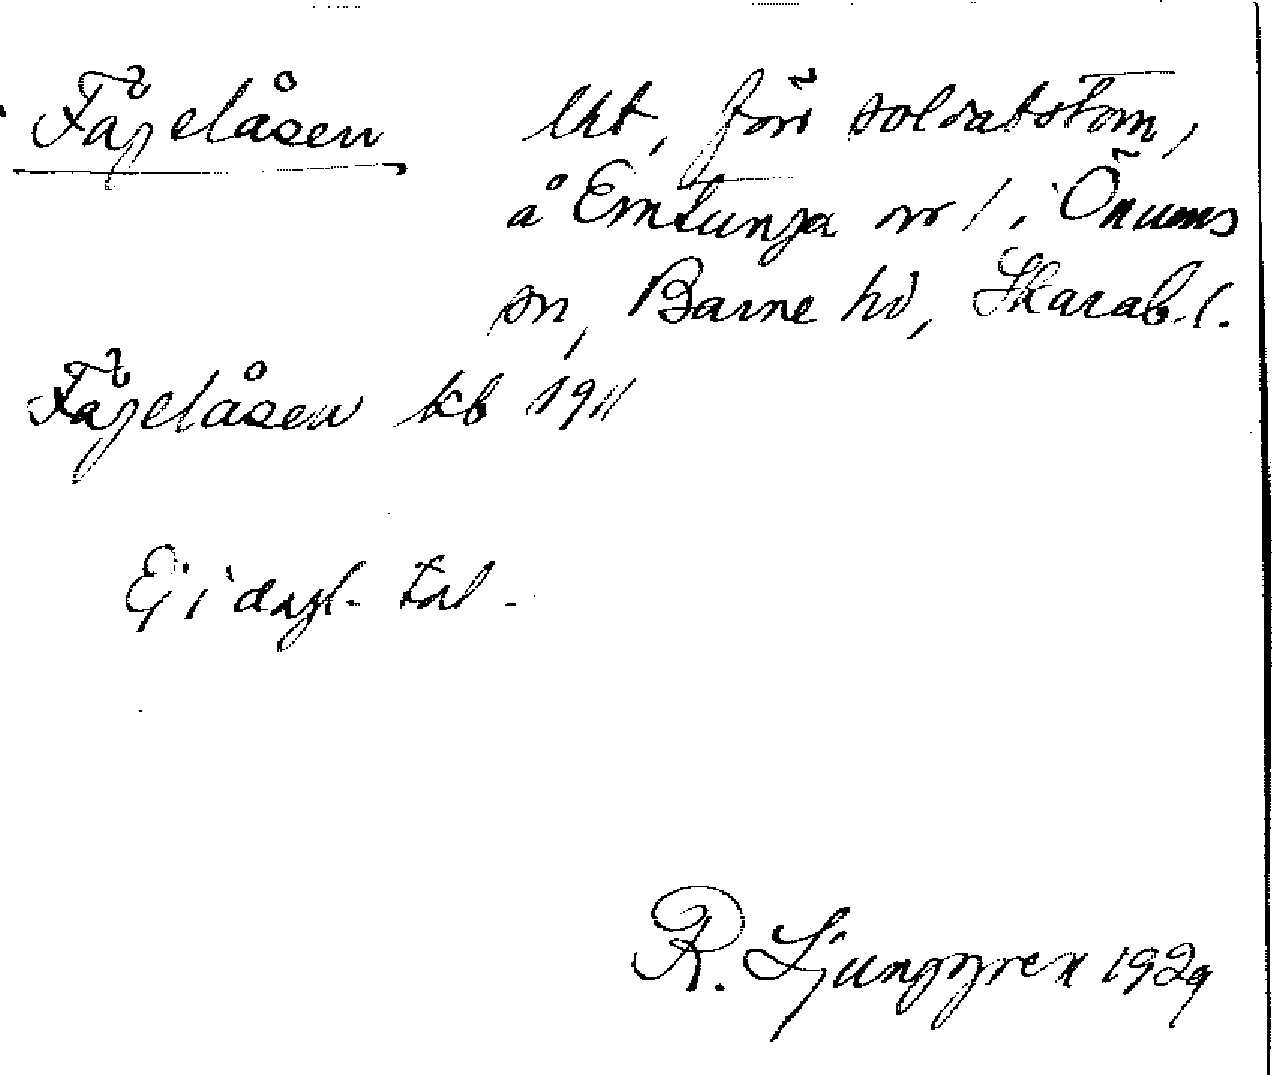 Fågelåsen lht, förr soldatstom,
å Emtunga nr 1 i Önums
sn, Barne hd, Skarab.l.
Fågelåsen kb 1911
Ej i dagl. tal.
R. Ljunggren 1929